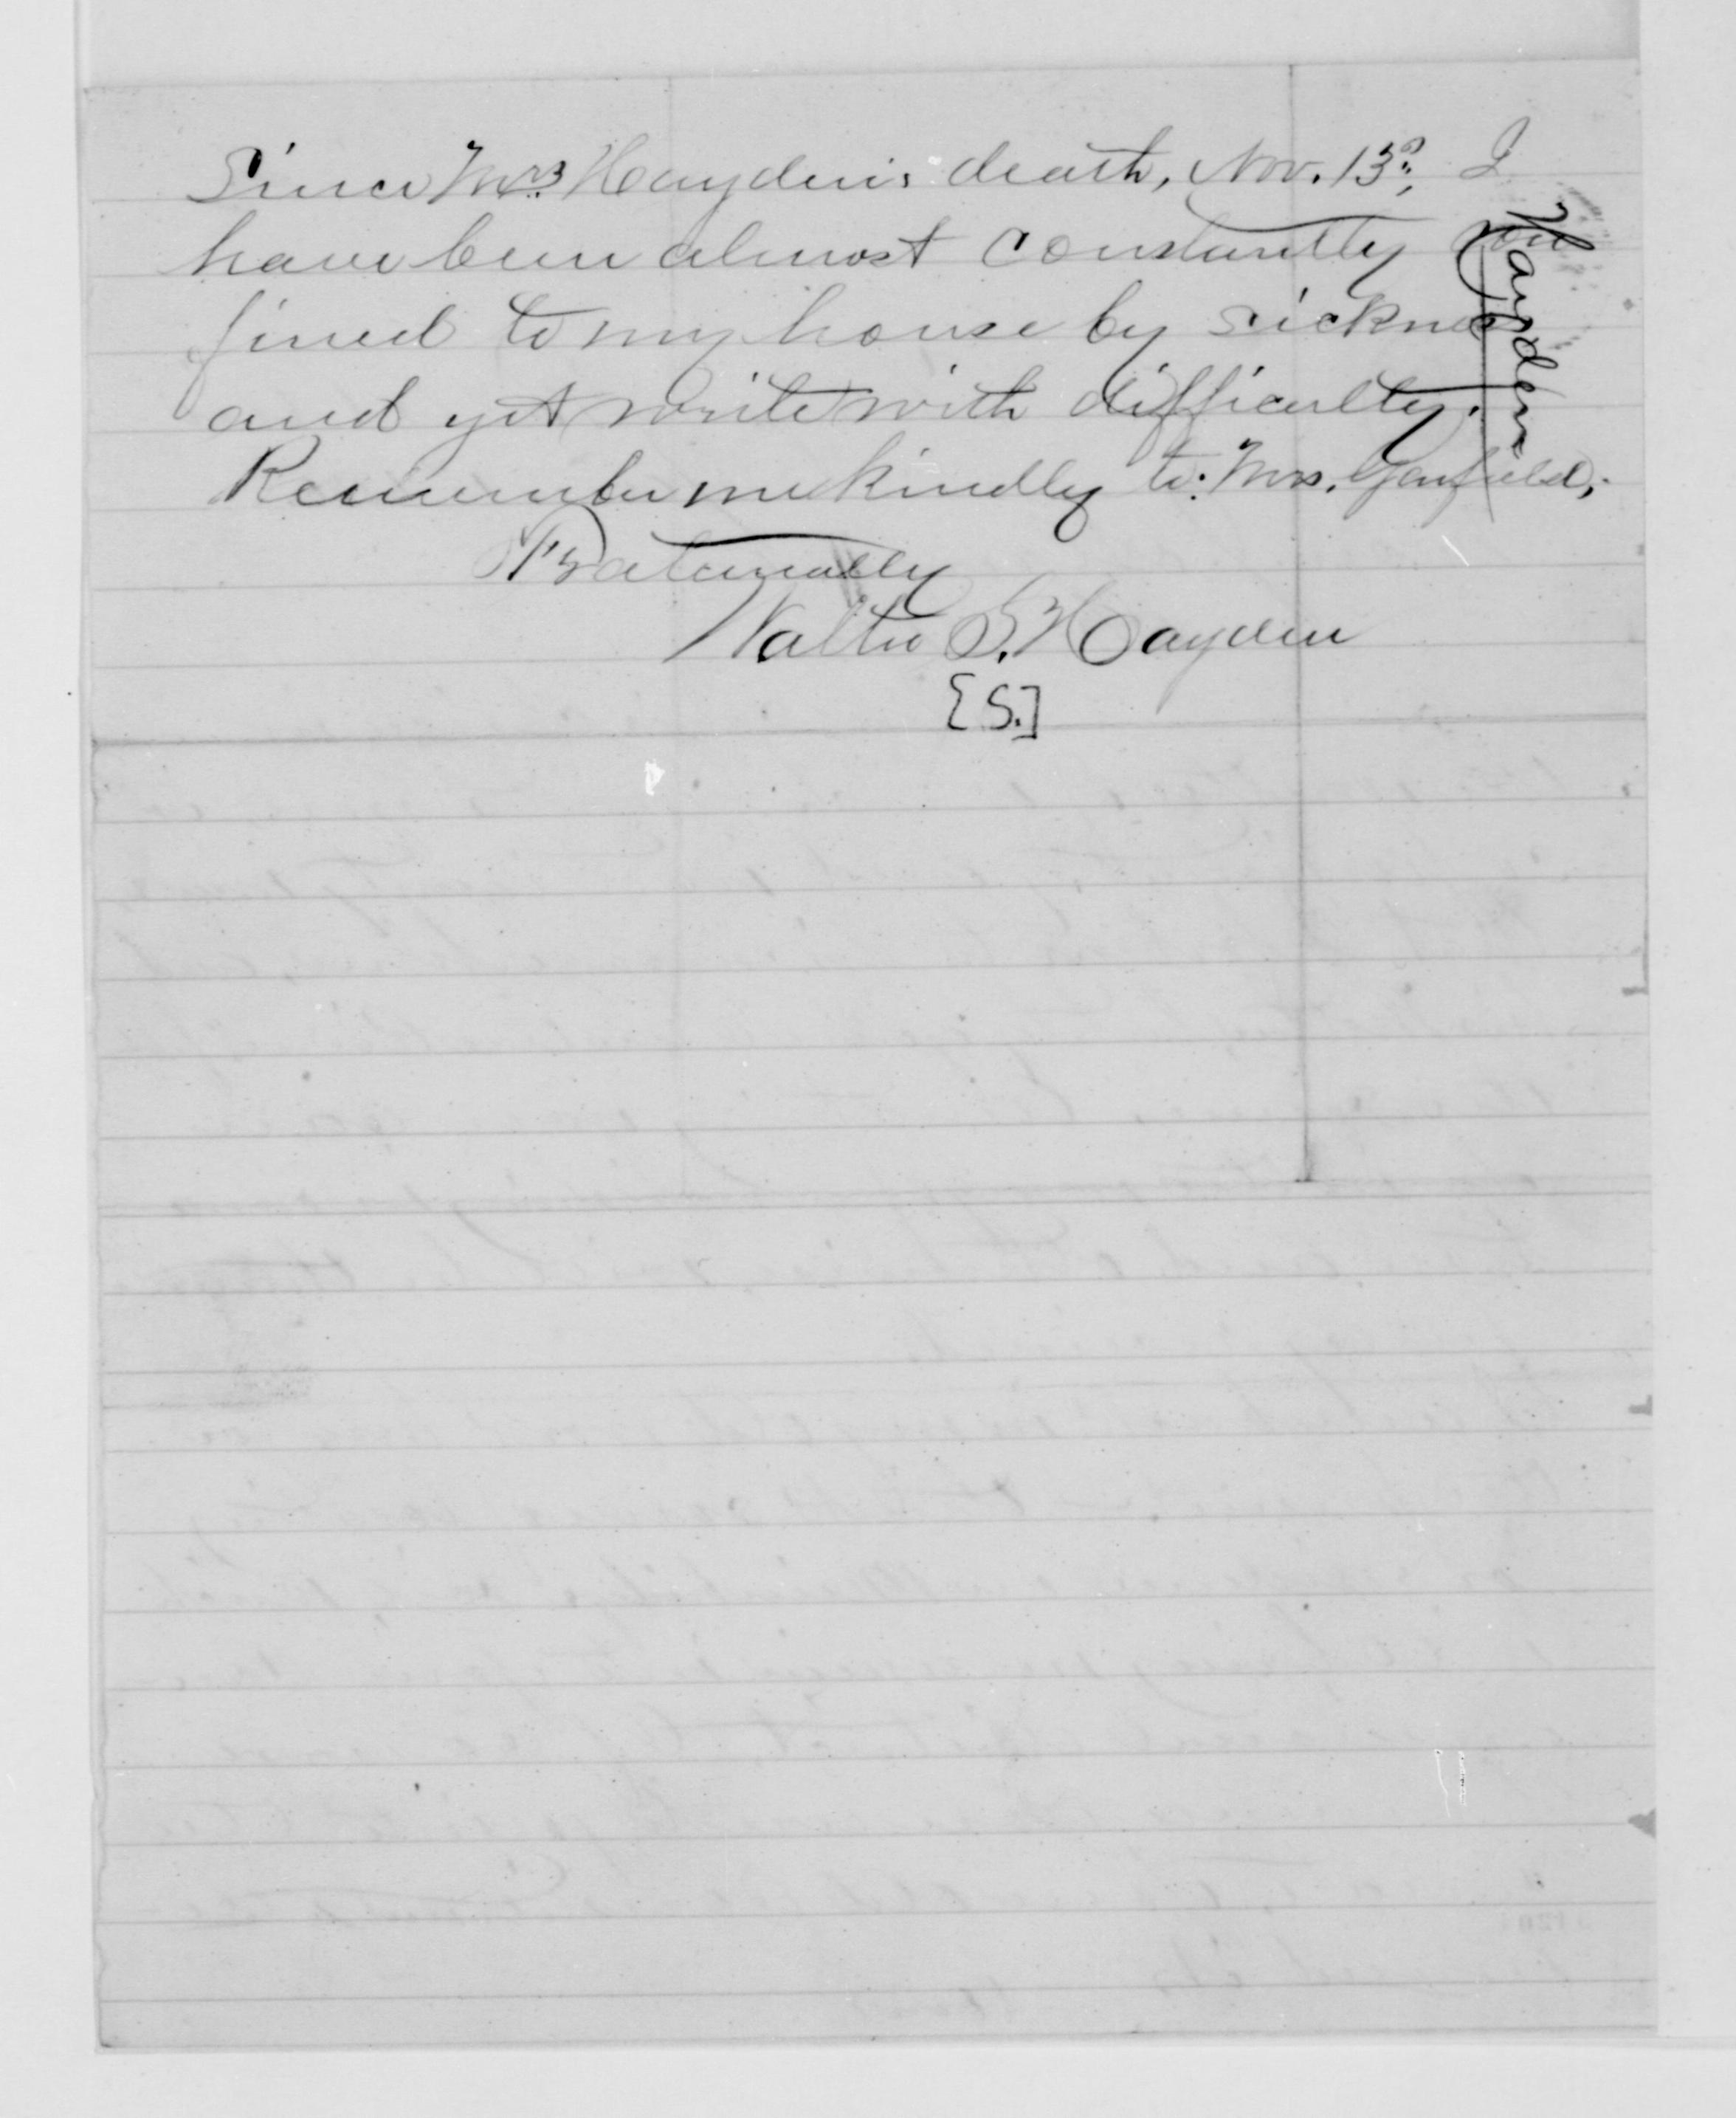 Since Mrs Hayden's death, Nov. 13th, I
have been almost constantly con
fined to my house by sickness
and yet write with difficulty.
Remember me kindly to Mrs. Garfield,
Fraternally
Walter S. Hayden
[S.]
Hayden